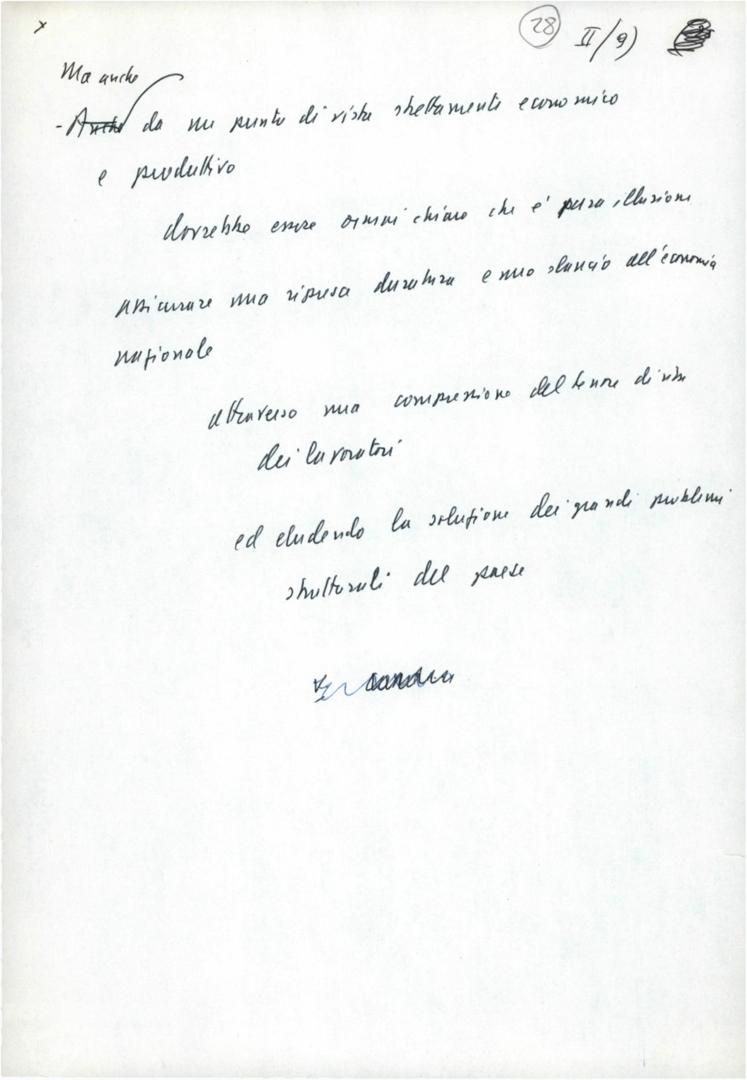 x
28 II/9)
Ma anche
- Anche da un punto di vista strettamente economico
e produttivo
dovrebbe essere ormai chiaro che è pura illusione
assicurare una ripresa duratura e uno slancio all'economia
nazionale
attraverso una compressione del tenore di vita
dei lavoratori
ed eludendo la soluzione dei grandi problemi
strutturali del paese